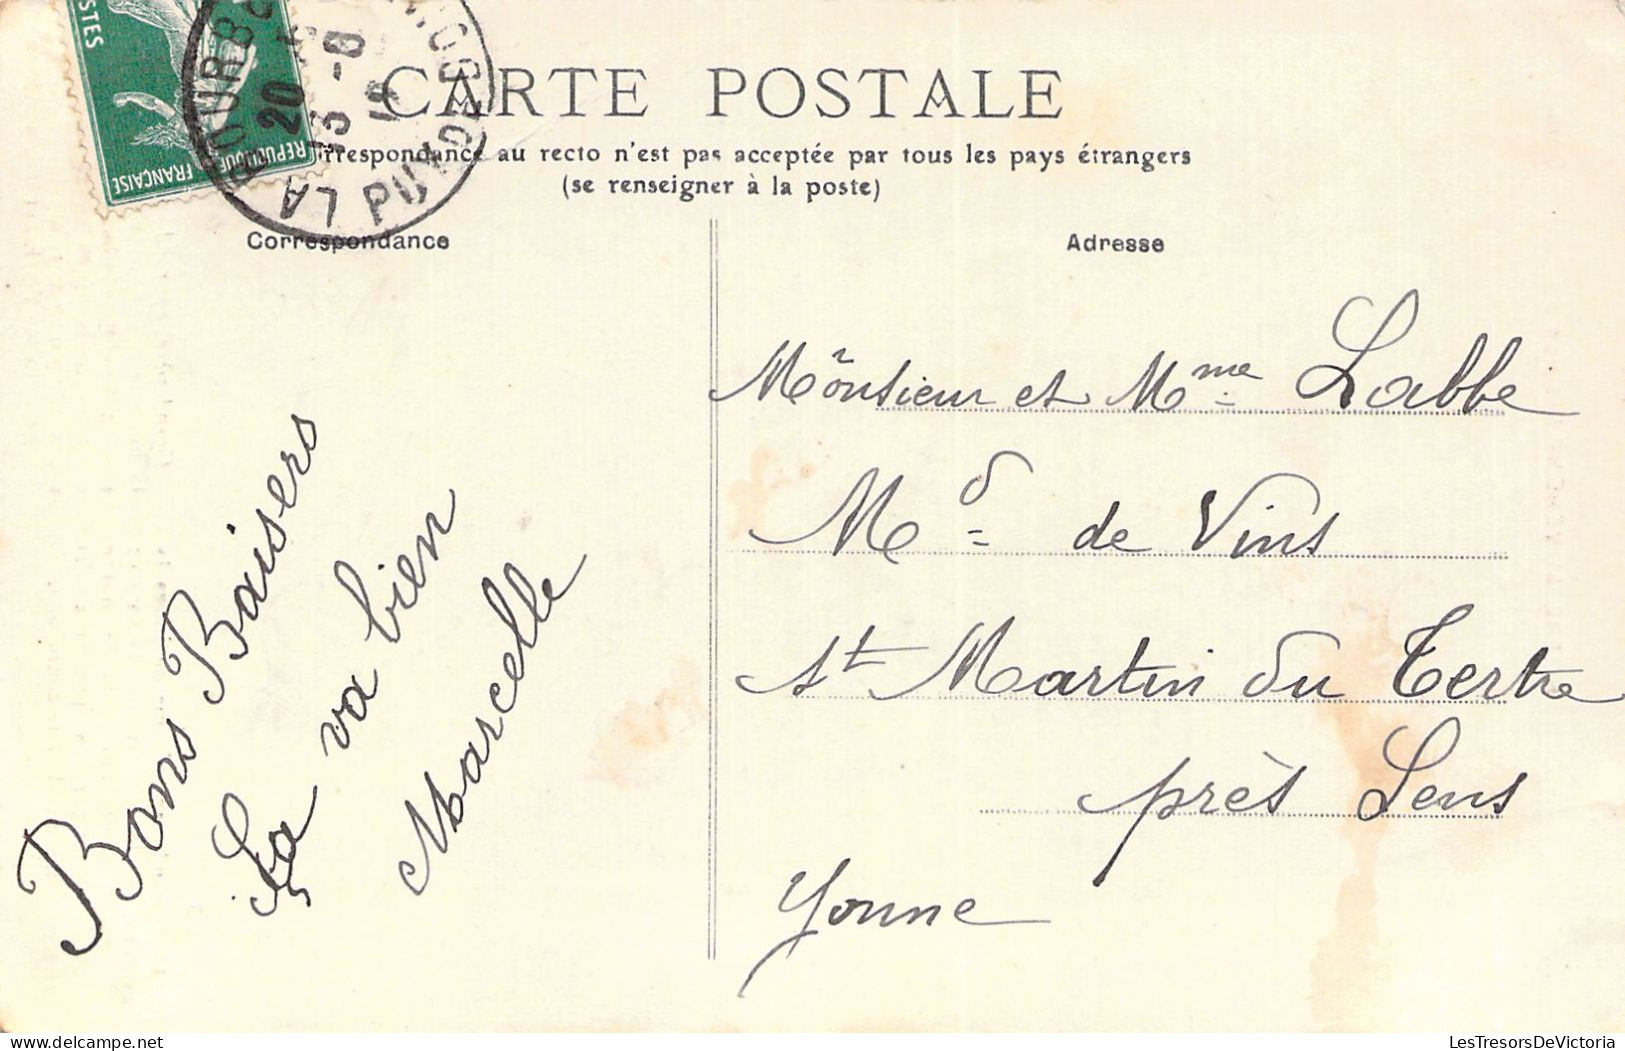 POSTES
REPUBLIQUE FRANÇAISE
LA BOURB
PUY DE DÔME
20
CARTE POSTALE
rrespondance au recto n'est pas acceptée par tous les pays étrangers
(se renseigner à la poste)
Correspondance
Adresse
Bons Baisers
Ça va bien
Marcelle
Monsieur et Mme Labbe
Md de Vins
St Martin du Tertre
près Sens
Yonne
LesTresorsDeVictoria